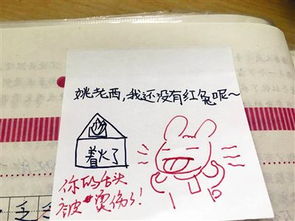 姚老西,我还没有红兔呢～
着火了
你的舌头
被烫伤了!